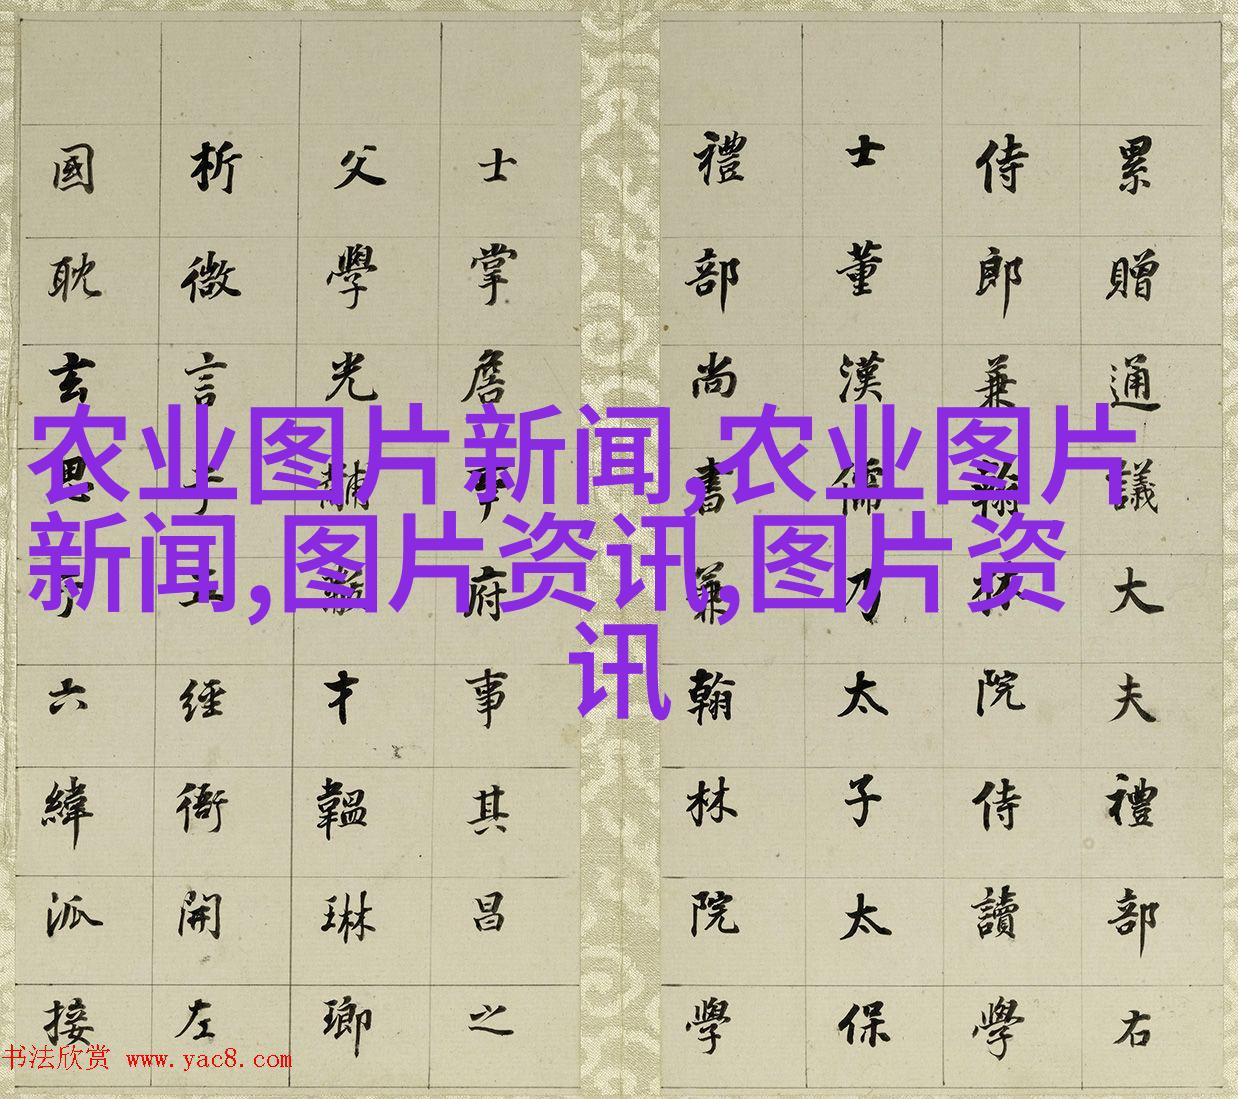 累贈通議大夫禮部右
侍郎兼翰林院侍讀學
士董漢儒乃太子太保
禮部尚書兼翰林院學
士掌詹事府事其昌之
父學光黼黻才韞琳瑯
析微言于五經衙開左
國耽玄思于六緯派接
农业图片新闻,农业图片
新闻,图片资讯,图片资
讯
书法欣赏 www.yac8.com